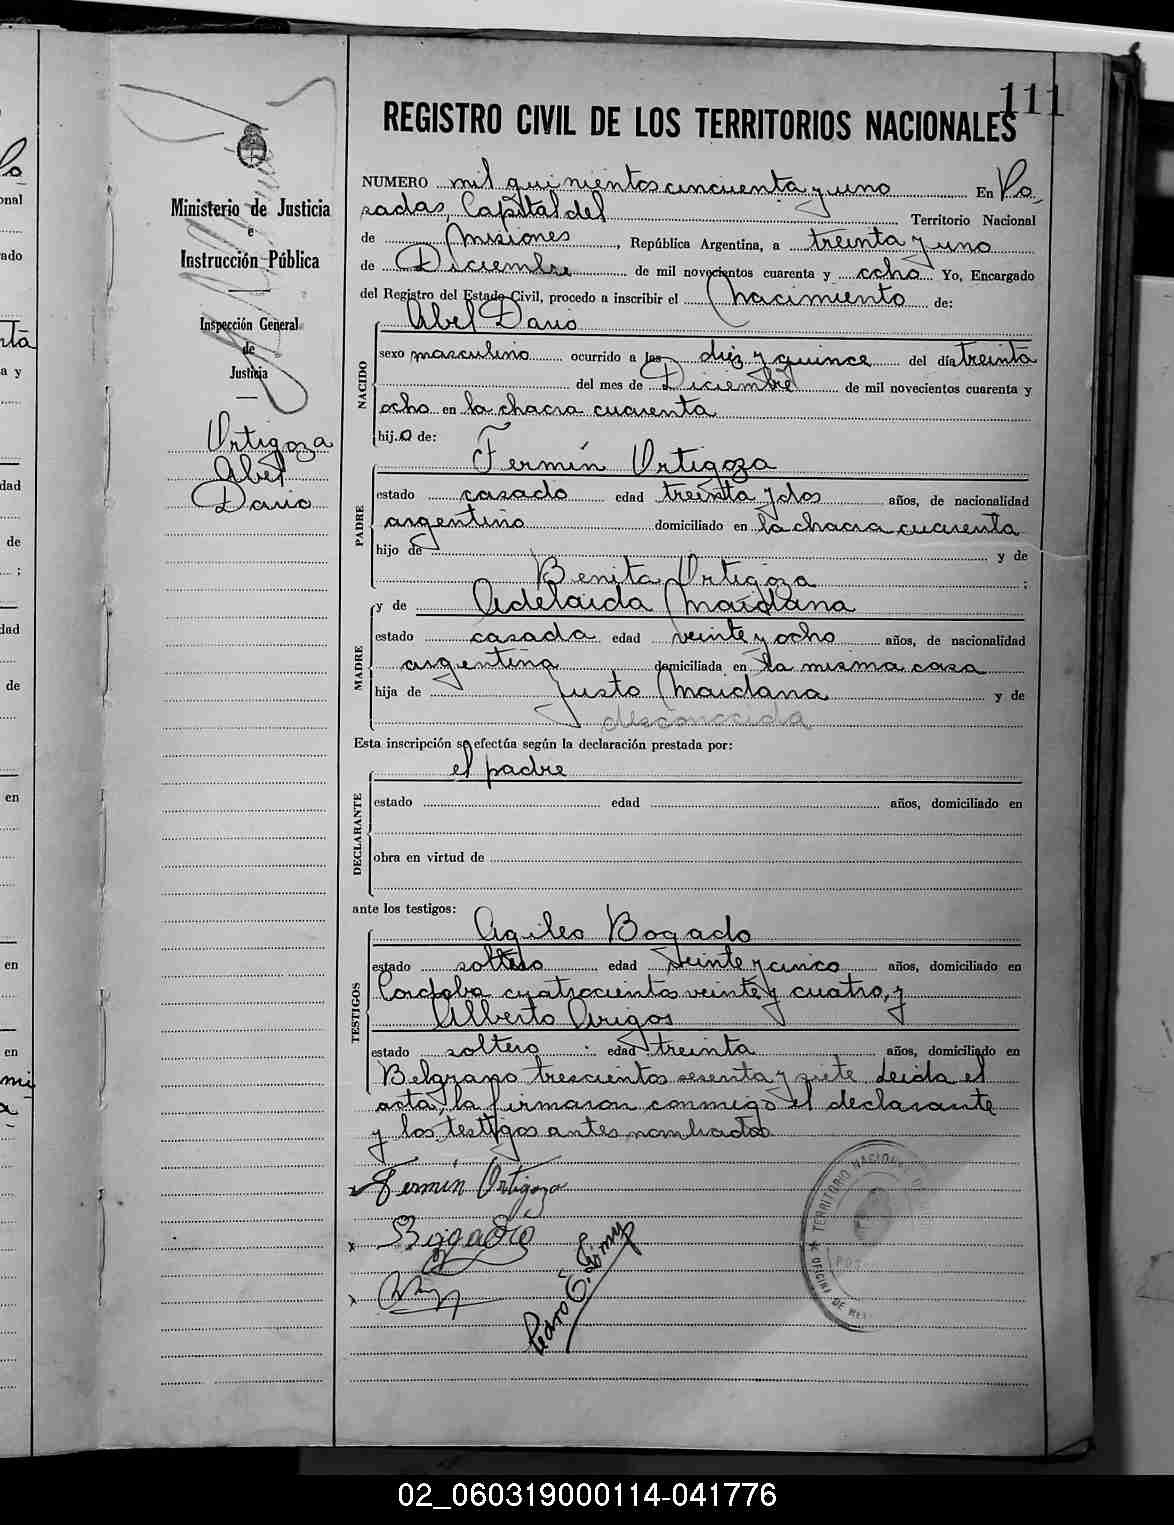 111
REGISTRO CIVIL DE LOS TERRITORIOS NACIONALES
Ministerio de Justicia
e
Instrucción Pública
Inspección General
de
Justicia
Ortigoza
Abel
Dario
NUMERO mil quinientos cincuenta y uno En Po-
sadas, Capital del Territorio Nacional
de Misiones, República Argentina, a treinta y uno
de Diciembre de mil novecientos cuarenta y ocho Yo, Encargado
del Registro del Estado Civil, procedo a inscribir el nacimiento de:
NACIDO
Abel Dario
sexo masculino ocurrido a las diez y quince del día treinta
del mes de Diciembre de mil novecientos cuarenta y
ocho en la chacra cuarenta
hijo de:
PADRE
Fermín Ortigoza
estado casado edad treinta y dos años, de nacionalidad
argentino domiciliado en la chacra cuarenta
hijo de y de
Benita Ortigoza ;
MADRE
y de Adelaida Maidana
estado casada edad veinte y ocho años, de nacionalidad
argentina domiciliada en la misma casa
hija de Justo Maidana y de
desconocida
Esta inscripción se efectúa según la declaración prestada por:
DECLARANTE
el padre
estado edad años, domiciliado en
obra en virtud de
ante los testigos:
TESTIGOS
Aquileo Bogado
estado soltero edad veinte y cinco años, domiciliado en
Cordoba cuatrocientos veinte y cuatro, y
Alberto Arigos
estado soltero edad treinta años, domiciliado en
Belgrano trescientos sesenta y siete Leida el
acta, la firmaron conmigo el declarante
y los testigos antes nombrados
Fermín Ortigoza
Bogado
Pedro E.
TERRITORIO NACIONAL
OFICINA DE
02_060319000114-041776